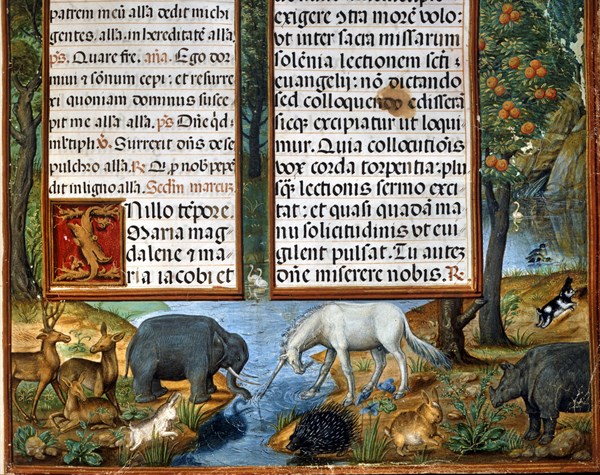 patrem meū alla dedit michi
gentes. alla. in hereditatē alla
ps. Quare fre. aña. Ego dor
miui & sōnum cepi: et resurre
xi quoniam dominus susce
pit me alla alla. ps Dñe qd
mltipli. V. Surrexit dñs de se
pulchro alla. R. Q p nob pepē
dit in ligno alla. Sedm marcuz
IN illo tēpore.
Maria mag
dalene & ma
ria iacobi et
exigere Itra morē volo:
vt inter sacra missarum
solēnia lectionem scti
euangelii: nō dictando
sed colloquendo edissera
sicq; excipiatur vt loqui
mur. Quia collocutiōis
vox corda torpentia: plu
sq; lectionis sermo exci
tat: et quasi quadā ma
nu solicitudinis vt eui
gilent pulsat. Tu autez
dñe miserere nobis. R.